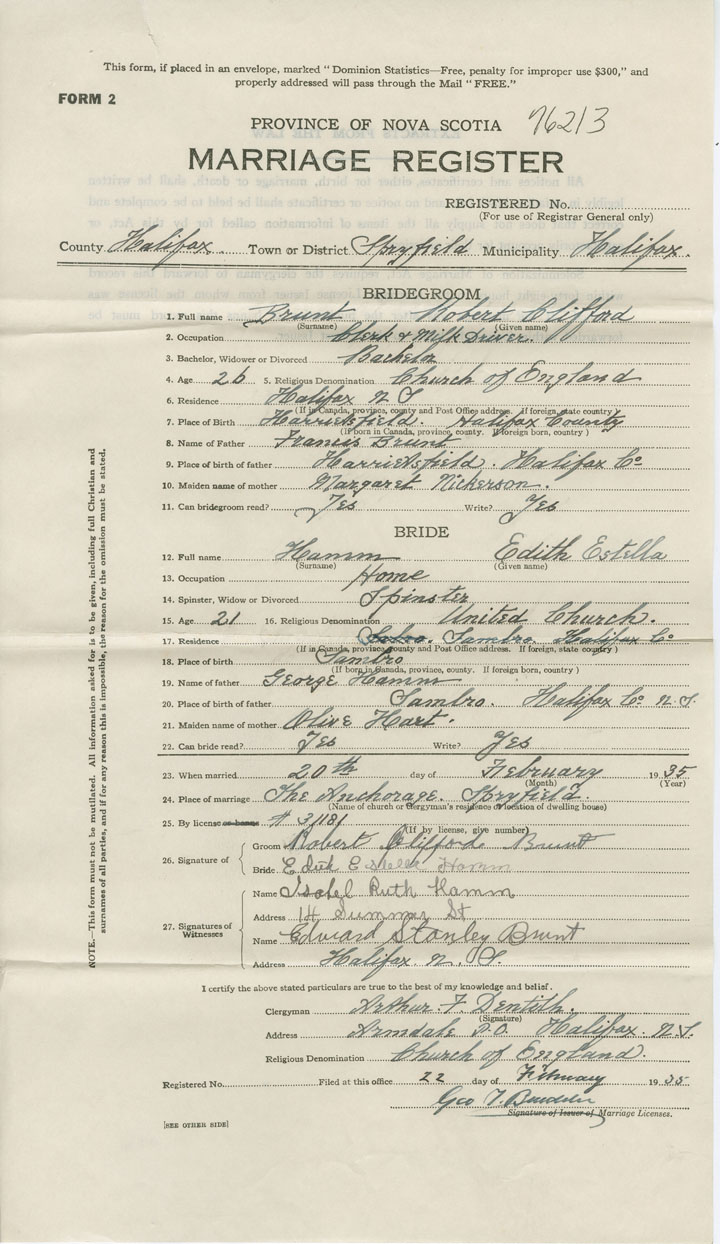 This form, if placed in an envelope, marked "Dominion Statistics—Free, penalty for improper use $300," and
properly addressed will pass through the Mail "FREE."
FORM 2
PROVINCE OF NOVA SCOTIA 76213
MARRIAGE REGISTER
REGISTERED No.
(For use of Registrar General only)
County Halifax Town or District Spryfield Municipality Halifax
BRIDEGROOM
1. Full name Brunt Robert Clifford
(Surname) (Given name)
2. Occupation Clerk & Milk Driver.
3. Bachelor, Widower or Divorced Bachelor
4. Age 26 5. Religious Denomination Church of England
6. Residence Halifax N S
(If in Canada, province, county and Post Office address. If foreign, state country)
7. Place of Birth Harrietsfield. Halifax County
(If born in Canada, province, county. If foreign born, country)
8. Name of Father Francis Brunt
9. Place of birth of father Harrietsfield. Halifax Co
10. Maiden name of mother Margaret Nickerson.
11. Can bridegroom read? Yes Write? Yes
BRIDE
12. Full name Hamm Edith Estella
(Surname) (Given name)
13. Occupation Home
14. Spinster, Widow or Divorced Spinster
15. Age 21 16. Religious Denomination United Church.
17. Residence Sambro. Halifax Co
(If in Canada, province county and Post Office address. If foreign, state country)
18. Place of birth Sambro
(If born in Canada, province, county. If foreign born, country)
19. Name of father George Hamm
20. Place of birth of father Sambro. Halifax Co. N.S.
21. Maiden name of mother Olive Hart.
22. Can bride read? Yes Write? Yes
23. When married 20th day of February 1935
(Month) (Year)
24. Place of marriage The Anchorage. Spryfield.
(Name of church or clergyman's residence or location of dwelling house)
25. By license or banns # 31181
(If by license, give number)
26. Signature of
Groom Robert Clifford Brunt
Bride Edith Estella Hamm
27. Signatures of Witnesses
Name Isabel Ruth Hamm
Address 14 Summer St
Name Edward Stanley Brunt
Address Halifax N. S.
I certify the above stated particulars are true to the best of my knowledge and belief.
Clergyman Arthur F. Dentith.
(Signature)
Address Armdale P.O. Halifax. N.S.
Religious Denomination Church of England.
Registered No. Filed at this office 22 day of February 1935
Geo T.
Signature of Issuer of Marriage Licenses.
[SEE OTHER SIDE]
NOTE.—This form must not be mutilated. All information asked for is to be given, including full Christian and
surnames of all parties, and if for any reason this is impossible, the reason for the omission must be stated.